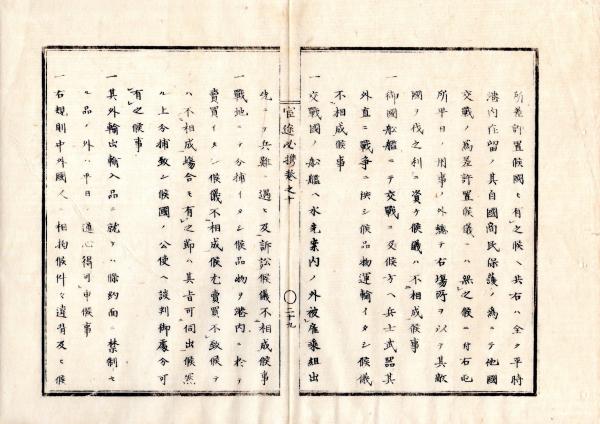 所差許置候國モ有之候ヘ共右ハ全ク平時
港内在留ノ其自國商民保護ノ為ニテ他國
交戰ノ為差許置候儀ニハ無之候ニ付右屯
所平日ノ用事ノ外總テ右場所ヲ以テ其敵
國ヲ伐之利ニ資ケ候儀ハ不相成候事
一御國船艦ニテ交戰ニ及候方ヘ兵士武器其
外直ニ戰争ニ供シ候品物運輸イタシ候儀
不相成候事
一交戰國ノ船艦ヘ水先案内ノ外被雇乘組出
官途必携巻之十
〇二十九
先ニテ兵難ニ遇ヒ及訴訟候儀不相成候事
一戰地ニテ分捕イタシ候品物ヲ港内ニ於テ
賣買イタシ候儀不相成候尤賣買不致候テ
ハ不相成塲合モ有之節ハ其旨可伺出候然
ル上分捕致シ候國ノ公使ヘ談判御處分可
有之候事
一其外輸出輸入品ニ就テハ條約面ニ禁制セ
ル品ノ外ハ平日ノ通心得可申候事
一右規則中外國人ニ相拘候件々違背及ヒ候